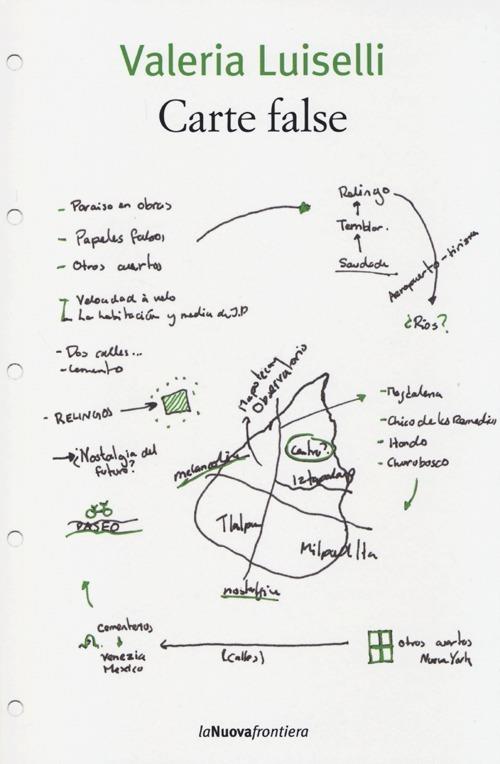 Valeria Luiselli
Carte false
- Paraiso en obras
- Papeles falsos
- Otros cuartos
Velocidad à velo
La habitación y media de J.D
- Dos calles...
- cemento
- RELINGOS
¿Nostalgia del
futuro?
PASEO
Relingo
Temblor.
Saudade
Aeropuerto
¿Ríos?
Mapoteca
Observatorio
melancolía
Centro?
Iztapalapa
Tlalpan
Milpa Alta
nostalgia
- Magdalena
- Chico de los Remedios
- Hondo
- Churubusco
cementerios
venezia
Mexico
(calles)
otros cuartos
Nueva York
laNuovafrontiera